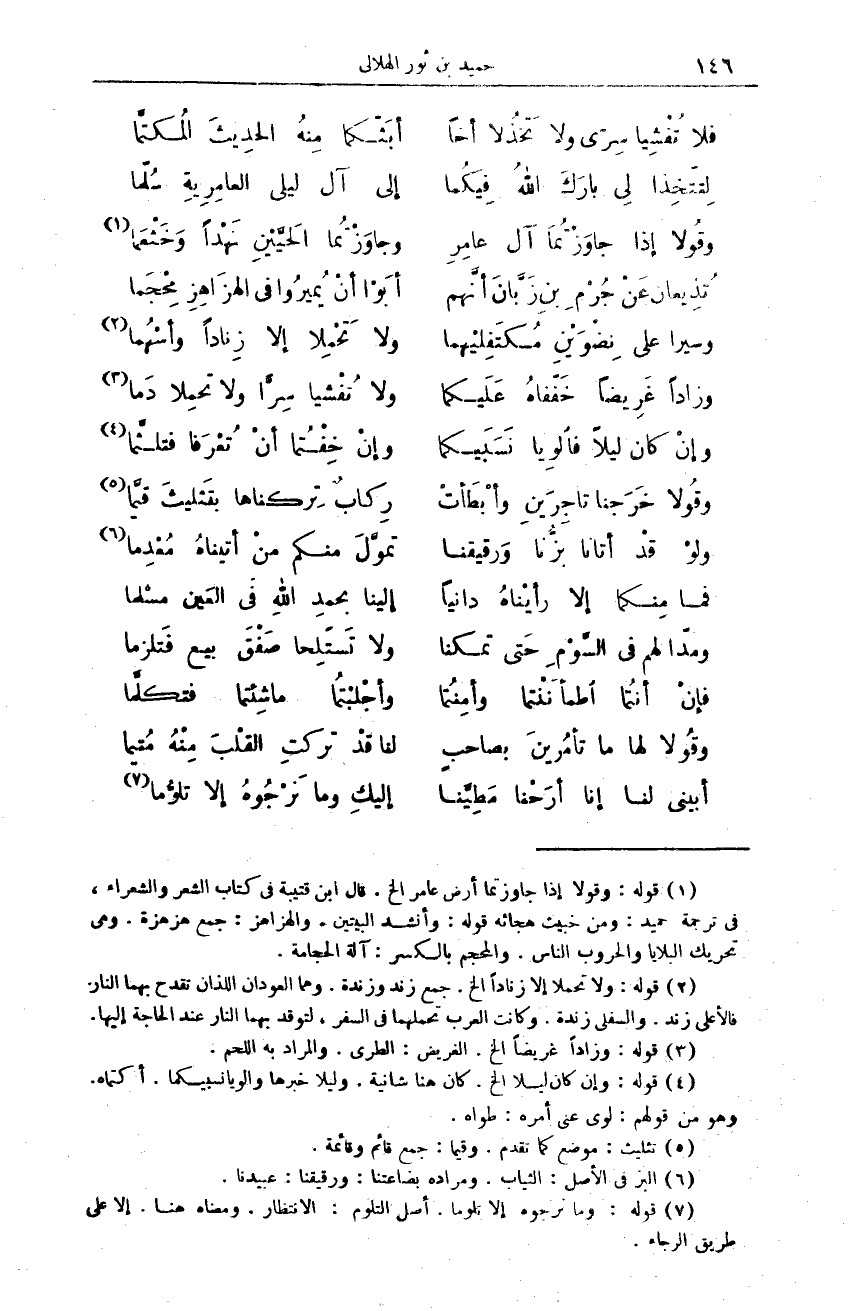 ١٤٦ حميد بن ثور الهلالى
فلا تُفْشِيا سِرّى ولا تَخْذُلا أخًا أبَثّكما مِنهُ الحديثَ المُكتَّما
لِتَتَّخِذا لِى بارَكَ اللهُ فيكُما إلى آل ليلى العامريةِ سُلّما
وقُولا إذا جاوَزْتُمَا آلَ عامرِ وجاوَزْتُما الحَيَّيْنِ نَهْداً وَخَثْعَما(١)
تُذيعان عَنْ جُرْمِ بنِ زَبَّانَ أنَّهم أبَوْا أنْ يُميرُوا فى الهزَاهِزِ مِحْجَما
وسيرا على نِضْوَيْنِ مُكتَفليْهما ولا تَحْمِلا إلا زِناداً وأسْهُما(٢)
وزاداً غَرِيضاً خَفّفاهُ عَلَيكما ولا تُفْشيا سِرًّا ولا تحملا دَما(٣)
وإنْ كان ليلاً فألويا نَسَبَيكما وإنْ خِفْتُما أنْ تُعْرَفا فتلثّما(٤)
وقُولا خَرَجنا تاجِرَينِ وأبْطَأتْ رِكابٌ تركناها بتَثليثَ قيَّما(٥)
ولوْ قدْ أتانا بزُّنا وَرقيقنا تموَّلَ منكم منْ أتيناهُ مُعْدِما(٦)
فما منكما إلا رأيْناهُ دانياً إلينا بحمدِ اللهِ فى العَين مسلما
ومدّا لهم فى السَّوْمِ حَتى تمكنا ولا تَستَلِحا صَفْقَ بيع فَتلزما
فإنْ أنتُما اَطمأنَنْتما وأمِنْتُما وأجْلبْتُما ماشِئتما فتكلَّما
وقُولا لها ما تأمُرِينَ بصاحبٍ لنا قدْ تركتِ القلْبَ مِنْهُ مُتيما
أبينى لنا إنا أرَحْنا مَطِيَّنا إليكِ وما نَرْجُوهُ إلا تلوُّما(٧)
(١) قوله : وقولا إذا جاوزتما أرض عامر الخ . قال ابن قتيبة فى كتاب الشعر والشعراء ،
فى ترجمة حميد : ومن خبيث هجائه قوله : وأنشد البيتين . والهزاهز : جمع هزهزة . وهى
تحريك البلايا والحروب الناس . والمحجم بالكسر : آلة الحجامة .
(٢) قوله : ولا تحملا إلا زناداً الخ . جمع زند وزندة . وهما العودان اللذان تقدح بهما النار.
فالأعلى زند . والسفلى زندة . وكانت العرب تحملهما فى السفر ، لتوقد بهما النار عند الحاجة إليها.
(٣) قوله : وزاداً غريضاً الخ . الغريض : الطرى . والمراد به اللحم .
(٤) قوله : وإن كان ليلا الخ . كان هنا شانية . وليلا خبرها والويا نسبيكما . أكتماه.
وهو من قولهم : لوى عنى أمره : طواه .
(٥) تثليث : موضع كما تقدم . وقيما : جمع قائم وقائمة .
(٦) البز فى الأصل : الثياب . ومراده بضاعتنا : ورقيقنا : عبيدنا .
(٧) قوله : وما نرجوه إلا تلوما . أصل التلوم : الانتظار . ومعناه هنا . إلا على
طريق الرجاء .